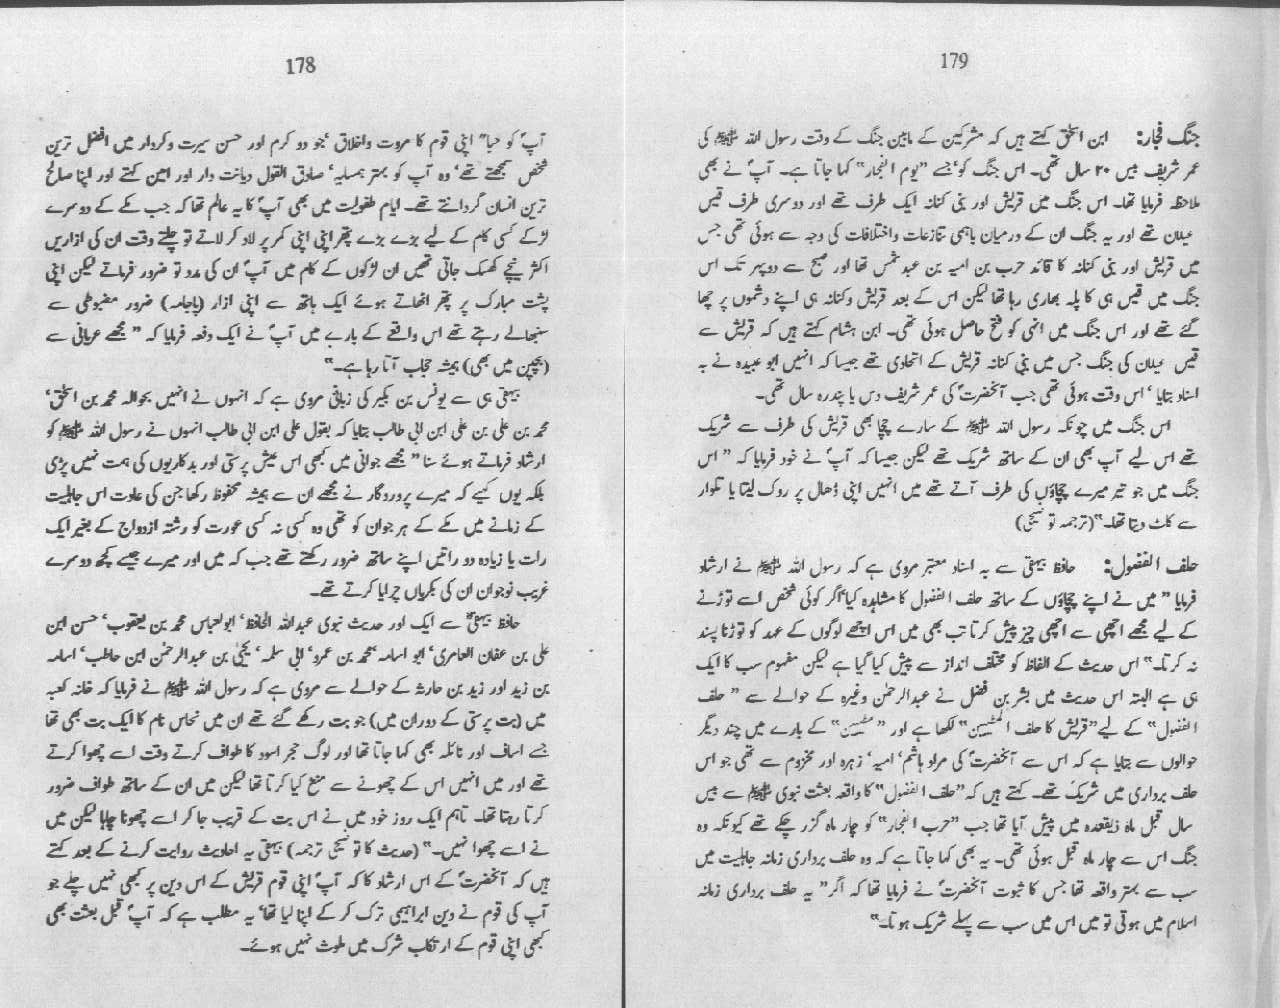 178
آپؐ کو حیا" اپنی قوم کا مروت واخلاق ‘جو دو کرم اور حسن سیرت وکردار میں افضل ترین
شخص سمجھتے تھے‘ وہ آپ کو بہتر ہمسایہ‘ صادق القول دیانت دار اور امین کہتے اور اپنا صالح
ترین انسان گردانتے تھے۔ ایام طفولیت میں بھی آپؐ کا یہ عالم تھا کہ جب مکے کے دوسرے
لڑکے کسی کام کے لیے بڑے بڑے پتھر اپنی اپنی کمر پر لاد کر لاتے تو چلتے وقت ان کی ازاریں
اکثر نیچے کھسک جاتی تھیں ان لڑکوں کے کام میں آپؐ ان کی مدد تو ضرور فرماتے لیکن اپنی
پشت مبارک پر پتھر اٹھاتے ہوئے ایک ہاتھ سے اپنی ازار (پاجامہ) ضرور مضبوطی سے
سنبھالے رہتے تھے اس واقعے کے بارے میں آپؐ نے ایک دفعہ فرمایا کہ " مجھے عریانی سے
(بچپن میں بھی) ہمیشہ حجاب آتا رہا ہے۔"
بیہقی ہی سے یونس بن بکیر کی زبانی مروی ہے کہ انہوں نے انہیں بحوالہ محمد بن اسحٰق‘
محمد بن علی بن علی ابن ابی طالب بتایا کہ بقول علی ابن ابی طالب انہوں نے رسول اللہ ﷺ کو
ارشاد فرماتے ہوئے سنا " مجھے جوانی میں کبھی اس عیش پرستی اور بدکاریوں کی ہمت نہیں پڑی
بلکہ یوں کہیے کہ میرے پروردگار نے مجھے ان سے ہمیشہ محفوظ رکھا جن کی عادت اس جاہلیت
کے زمانے میں مکے کے ہر جوان کو تھی وہ کسی نہ کسی عورت کو رشتہ ازدواج کے بغیر ایک
رات یا زیادہ دو راتیں اپنے ساتھ ضرور رکھتے تھے جب کہ میں اور میرے جیسے کچھ دوسرے
غریب نوجوان ان کی بکریاں چرایا کرتے تھے۔
حافظ بیہقیؒ سے ایک اور حدیث نبوی عبداللہ الحافظ‘ ابوالعباس محمد بن یعقوب‘ حسن ابن
علی بن عفان العامری‘ ابو اسامہ‘ محمد بن عمرو‘ ابی سلمہ‘ یحییٰ بن عبدالرحمٰن ابن حاطب‘ اسامہ
بن زید اور زید بن حارثہ کے حوالے سے مروی ہے کہ رسول اللہ ﷺ نے فرمایا کہ خانہ کعبہ
میں (بت پرستی کے دوران میں) جو بت رکھے گئے تھے ان میں نحاس نام کا ایک بت بھی تھا
جسے اساف اور نائلہ بھی کہا جاتا تھا اور لوگ حجر اسود کا طواف کرتے وقت اسے چھوا کرتے
تھے اور میں انہیں اس کے چھونے سے منع کیا کرتا تھا لیکن میں ان کے ساتھ طواف ضرور
کرتا رہتا تھا۔ تاہم ایک روز خود میں نے اس بت کے قریب جا کر اسے چھونا چاہا لیکن میں
نے اسے چھوا نہیں۔" (حدیث کا توضیحی ترجمہ) بیہقی یہ احادیث روایت کرنے کے بعد کہتے
ہیں کہ آنحضرتؐ کے اس ارشاد کا کہ آپؐ اپنی قوم قریش کے اس دین پر کبھی نہیں چلے جو
آپ کی قوم نے دین ابراہیمی ترک کر کے اپنا لیا تھا‘ یہ مطلب ہے کہ آپؐ قبل بعثت بھی
کبھی اپنی قوم کے ارتکاب شرک میں ملوث نہیں ہوئے۔
179
جنگ فجار: ابن اسحٰق کہتے ہیں کہ مشرکین کے مابین جنگ کے وقت رسول اللہ ﷺ کی
عمر شریف بیس ۲۰ سال تھی۔ اس جنگ کو‘ جسے "یوم الفجار" کہا جاتا ہے۔ آپؐ نے بھی
ملاحظہ فرمایا تھا۔ اس جنگ میں قریش اور بنی کنانہ ایک طرف تھے اور دوسری طرف قیس
عیلان تھے اور یہ جنگ ان کے درمیان باہمی تنازعات واختلافات کی وجہ سے ہوئی تھی جس
میں قریش اور بنی کنانہ کا قائد حرب بن امیہ بن عبدشمس تھا اور صبح سے دوپہر تک اس
جنگ میں قیس ہی کا پلہ بھاری رہا تھا لیکن اس کے بعد قریش وکنانہ ہی اپنے دشمنوں پر چھا
گئے تھے اور اس جنگ میں انہی کو فتح حاصل ہوئی تھی۔ ابن ہشام کہتے ہیں کہ قریش سے
قیس عیلان کی جنگ جس میں بنی کنانہ قریش کے اتحادی تھے جیسا کہ انہیں ابو عبیدہ نے بہ
اسناد بتایا ‘ اس وقت ہوئی تھی جب آنحضرتؐ کی عمر شریف دس یا پندرہ سال تھی۔
اس جنگ میں چونکہ رسول اللہ ﷺ کے سارے چچا بھی قریش کی طرف سے شریک
تھے اس لیے آپ بھی ان کے ساتھ شریک تھے لیکن جیسا کہ آپؐ نے خود فرمایا کہ " اس
جنگ میں جو تیر میرے چچاؤں کی طرف آتے تھے میں انہیں اپنی ڈھال پر روک لیتا یا تلوار
سے کاٹ دیتا تھا۔" (ترجمہ توضیحی)
حلف الفضول: حافظ بیہقی سے بہ اسناد معتبر مروی ہے کہ رسول اللہ ﷺ نے ارشاد
فرمایا " میں نے اپنے چچاؤں کے ساتھ حلف الفضول کا مشاہدہ کیا‘ اگر کوئی شخص اسے توڑنے
کے لیے مجھے اچھی سے اچھی چیز پیش کرتا تب بھی میں اس اچھے لوگوں کے عہد کو توڑنا پسند
نہ کرتا۔" اس حدیث کے الفاظ کو مختلف انداز سے پیش کیا گیا ہے لیکن مفہوم سب کا ایک
ہی ہے البتہ اس حدیث میں بشر بن فضل نے عبدالرحمٰن وغیرہ کے حوالے سے " حلف
الفضول" کے لیے "قریش کا حلف المطیبین" لکھا ہے اور "مطیبین" کے بارے میں چند دیگر
حوالوں سے بتایا ہے کہ اس سے آنحضرتؐ کی مراد ہاشم‘ امیہ‘ زہرہ اور مخزوم سے تھی جو اس
حلف برداری میں شریک تھے۔ کہتے ہیں کہ "حلف الفضول" کا واقعہ بعثت نبوی ﷺ سے بیس
سال قبل ماہ ذیقعدہ میں پیش آیا تھا جب "حرب الفجار" کو چار ماہ گزر چکے تھے کیونکہ وہ
جنگ اس سے چار ماہ قبل ہوئی تھی۔ یہ بھی کہا جاتا ہے کہ وہ حلف برداری زمانہ جاہلیت میں
سب سے بہتر واقعہ تھا جس کا ثبوت آنحضرتؐ نے فرمایا تھا کہ اگر" یہ حلف برداری زمانہ
اسلام میں ہوتی تو میں اس میں سب سے پہلے شریک ہوتا۔"